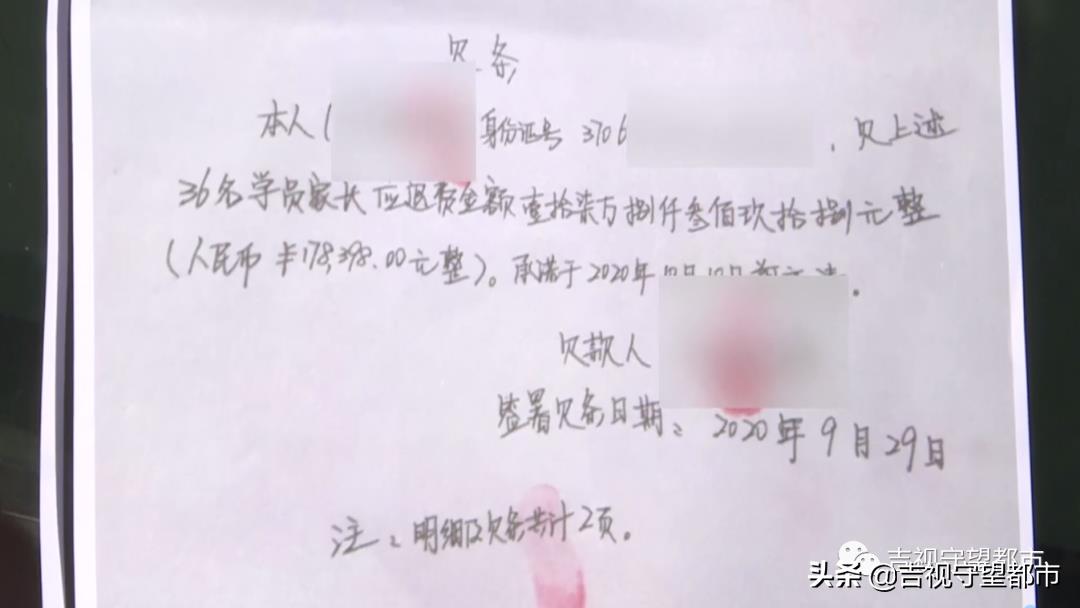 欠条
本人( 身份证号 3706 ,欠上述
36名学员家长应退费金额壹拾柒万捌仟叁佰玖拾捌元整
(人民币 ¥178,398.00元整)。承诺于2020年10月10日前
欠款人
签署欠条日期：2020年9月29日
注：明细及欠条共计2页。
吉视守望都市
头条@吉视守望都市